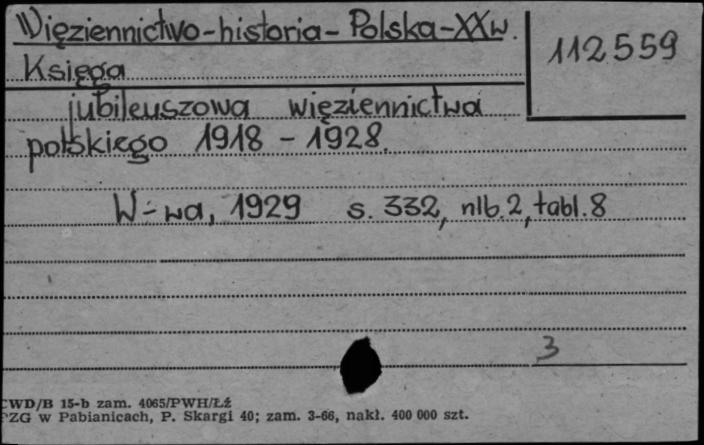 Więziennictwo-historia-Polska-XXw.
112559
Księga
jubileuszowa więziennictwa
polskiego 1918 - 1928.
W-wa, 1929 s. 332, nlb. 2, tabl. 8
3
CWD/B 15-b zam. 4065/PWH/Łź
PZG w Pabianicach, P. Skargi 40; zam. 3-66, nakł. 400 000 szt.